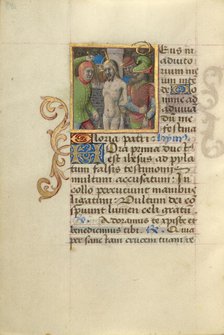 Deus in
adiuto
rium m
Do
mine ad
adiuuan
dum me
festina
Gloria patri
Hora prima duc
est ihesus ad pyla
tum falsis testimoniis
multum accusatum In
collo percutiunt manibus
ligatum Vultum dei co
spuunt lumen celi gratum
Adoramus te xpiste et
benedicimus tibi Quia
per sanctam crucem tuam re